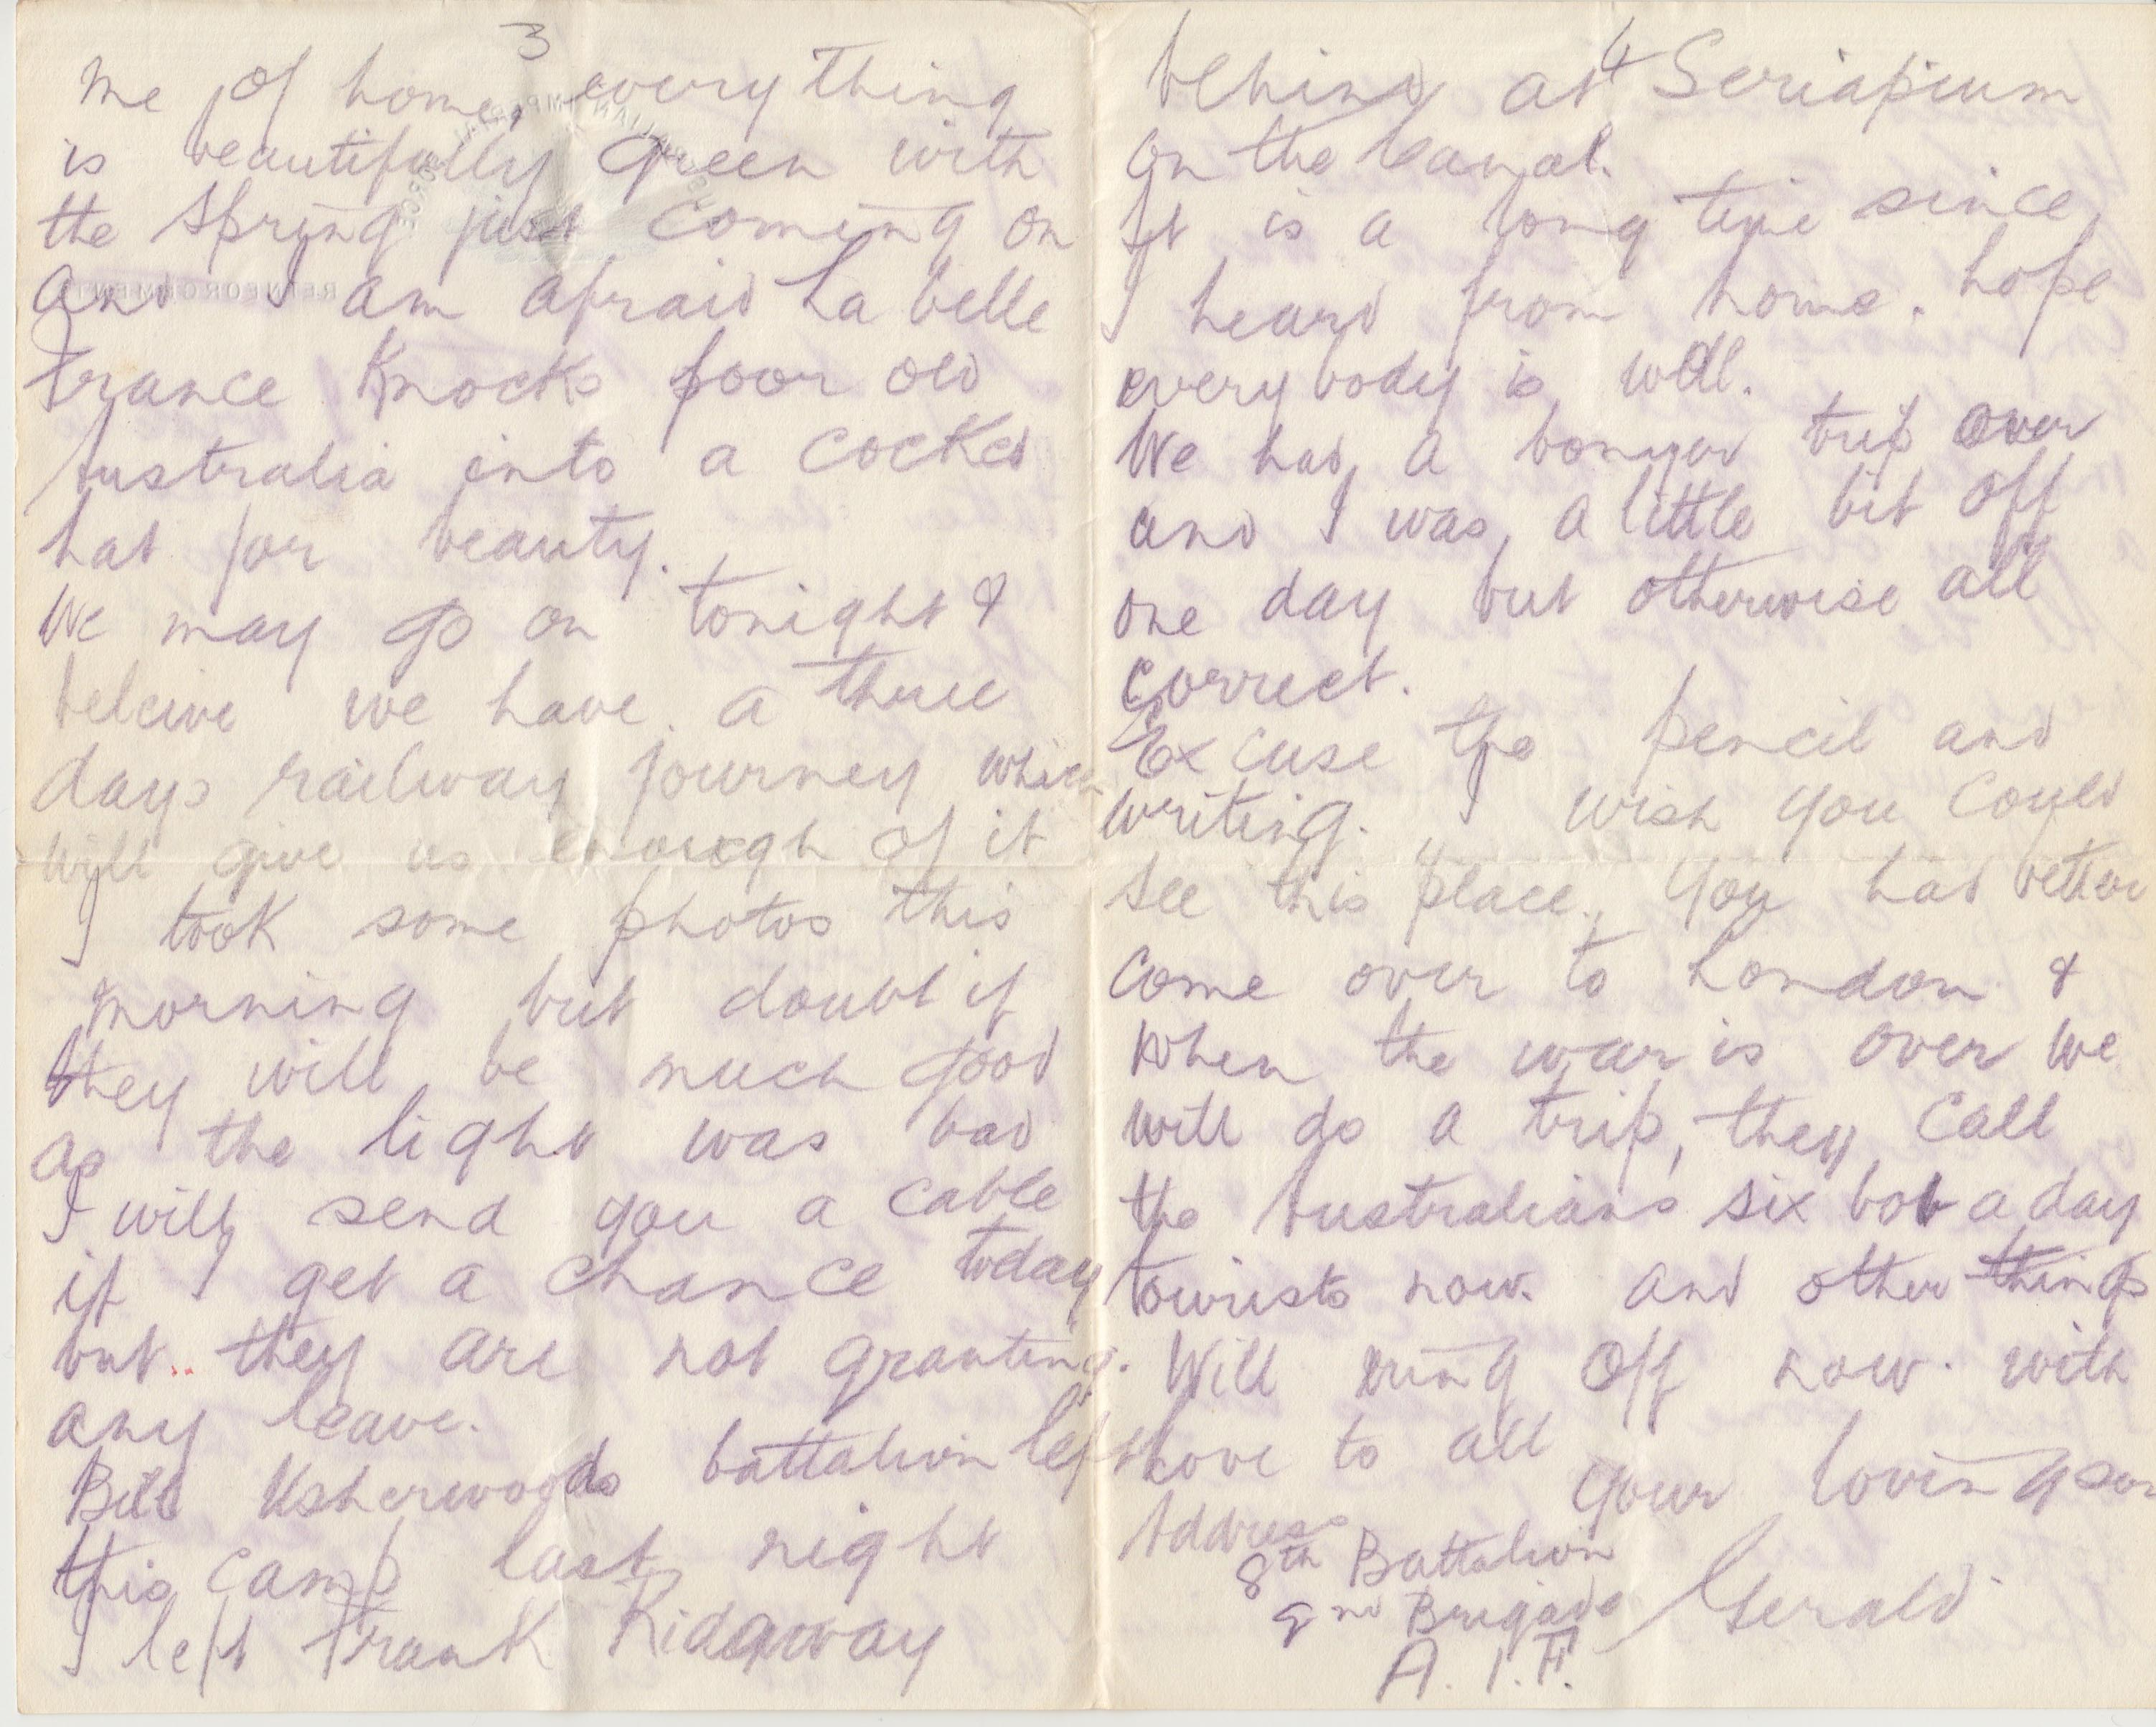 3
me of home, everything
is beautifully green with
the spring just coming on
and I am afraid La belle
France knocks poor old
Australia into a cocked
hat for beauty.
We may go on tonight &
beleive we have a three
days railway journey which
will give us enough of it
I took some photos this
morning but doubt if
they will be much good
as the light was bad
I will send you a cable
if I get a chance today
but they are not granting
any leave.
Bill Usherwoods battalion left
this camp last night
I left Frank Ridgway
4
behind at Seriapium
on the Canal.
It is a long time since
I heard from home. hope
everybody is well.
We had a bonyer trip over
and I was a little bit off
one day but otherwise all
correct.
Excuse the pencil and
writing. I wish you could
see this place, you had better
come over to London &
when the war is over we
will do a trip, they call
the Australians six bob a day
tourists now. and other things
Will ring off now. with
love to all
your loving son
Address
8th Battalion
2nd Brigade Gerald
A.I.F.